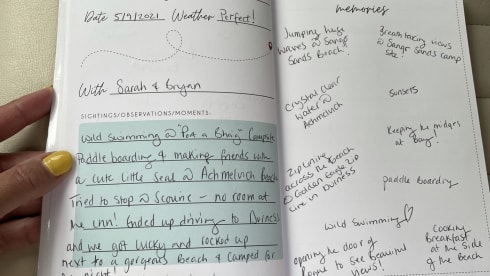 Date 5/9/2021 Weather Perfect!
With Sarah & Bryan
SIGHTINGS/OBSERVATIONS/MOMENTS:
Wild swimming @ "Port a Bhaigh" Campsite
Paddle boarding & making friends with
a cute little Seal @ Achmelvich Beach
Tried to stop @ Scourie – no room at
the inn! Ended up driving to Durness
and we got lucky and rocked up
next to a gorgeous Beach & Camped for
memories
Jumping huge
waves @ Sango
Sands Beach!
Breathtaking views
@ Sango Sands camp
site!
Crystal clear
water @
Achmelvich
sunsets
Keeping the midges
at Bay!
Zip Lining
across the Beach
@ Golden Eagle Zip
Line in Durness
paddle boarding
Wild Swimming
opening the door of
to see beautiful
views!
Cooking
Breakfast
at the side
of the Beach